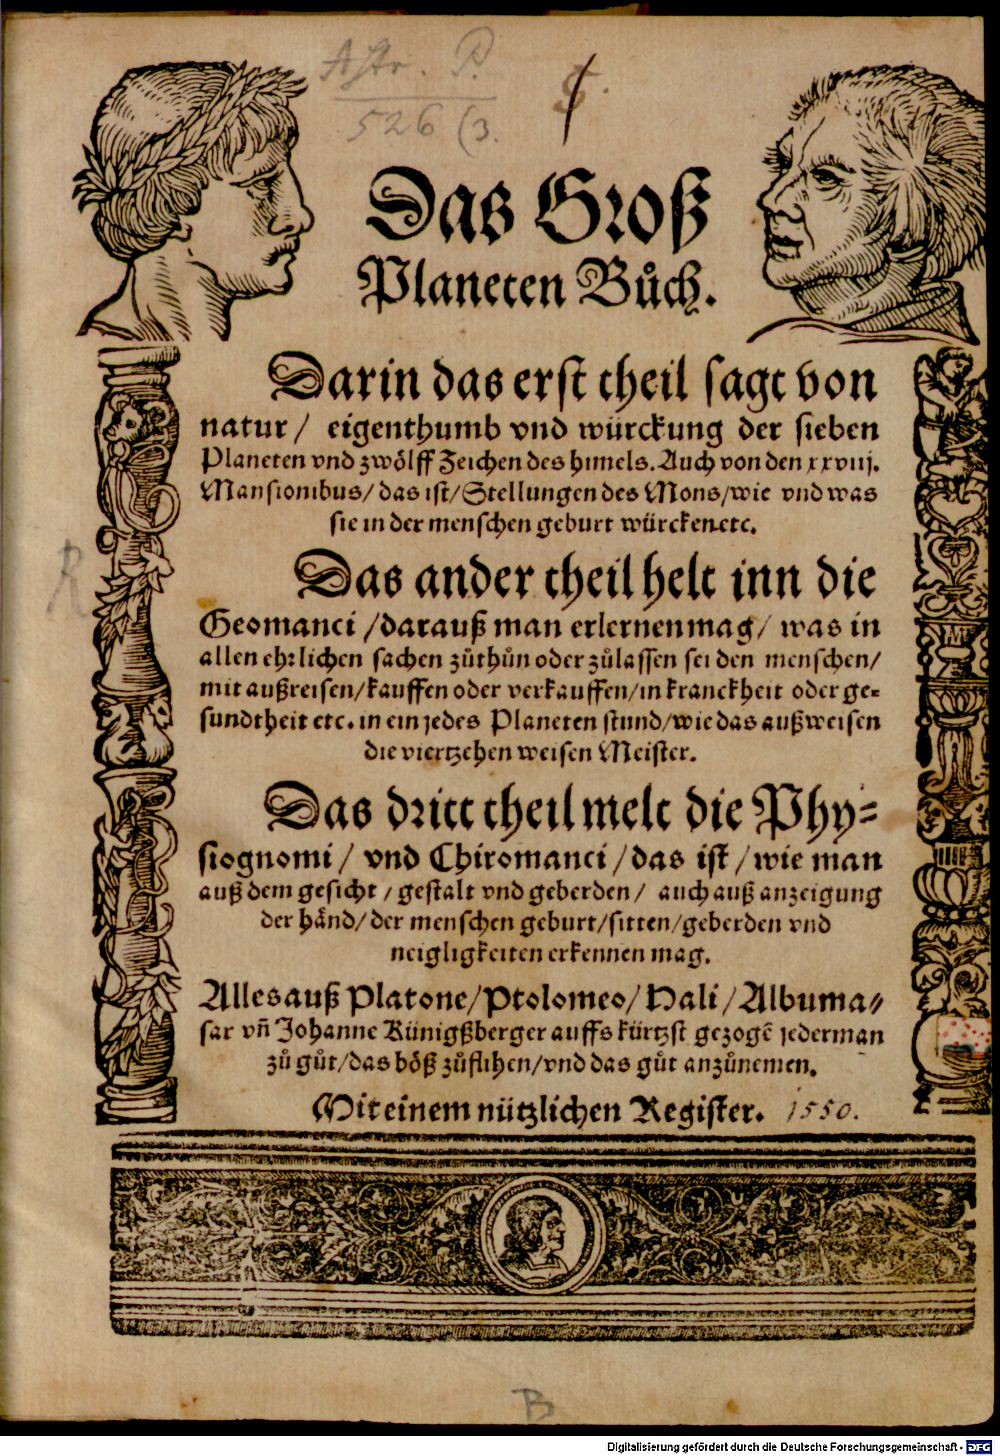 Astr. P.
526 (3.
Das Groß
Planeten Bůch.
Darin das erst theil sagt von
natur / eigenthumb vnd würckung der sieben
Planeten vnd zwölff Zeichen des himels. Auch von den xxviij.
Mansionibus / das ist / Stellungen des Mons / wie vnd was
sie in der menschen geburt würcken.etc.
Das ander theil helt inn die
Geomanci / darauß man erlernen mag / was in
allen ehrlichen sachen zůthůn oder zůlassen sei den menschen /
mit außreisen / kauffen oder verkauffen / in kranckheit oder ge=
sundtheit etc. in ein jedes Planeten stund / wie das außweisen
die viertzehen weisen Meister.
Das dritt theil melt die Phy=
siognomi / vnd Chiromanci / das ist / wie man
auß dem gesicht / gestalt vnd geberden / auch auß anzeigung
der händ / der menschen geburt / sitten / geberden vnd
neigligkeiten erkennen mag.
Alles auß Platone / Ptolomeo / Hali / Albuma=
sar vñ Johanne Künigßberger auffs kürtzst gezogē jederman
zů gůt / das böß zůflihen / vnd das gůt anzůnemen.
Mit einem nützlichen Register. 1550.
R
M
B
Digitalisierung gefördert durch die Deutsche Forschungsgemeinschaft - DFG